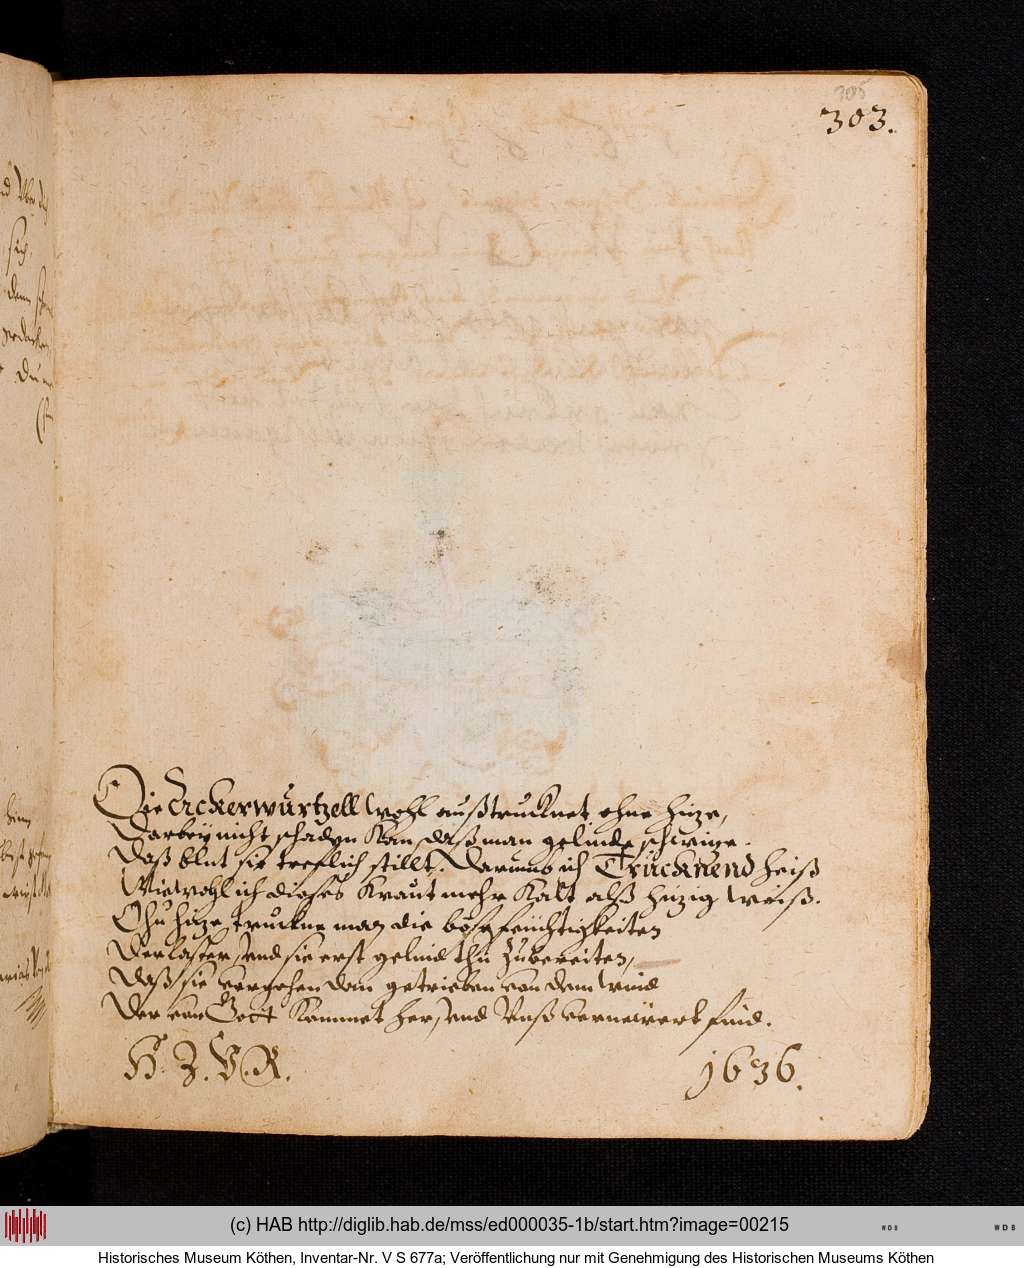 305
303.
Die Ackerwurtzell wohl außtrucknet ohne hize,
Darbey nicht schaden kan, daß man gelinde schwize.
Daß blut sie trefflich stillt. Darumb ich Trucknend heiß
Wiewohl ich dieses Kraut mehr kalt alß hizig weiß.
Ohn hize truckne man die böse feuchtigkeiten
Der laster, und sie erst gelind thu zubereiten,
Daß sie vergehen dan getrieben von dem wind
Der von Gott kommet her, und unß vernewert find.
H. Z. V. R.
1636.
sich,
(c) HAB http://diglib.hab.de/mss/ed000035-1b/start.htm?image=00215
WDB
WDB
Historisches Museum Köthen, Inventar-Nr. V S 677a; Veröffentlichung nur mit Genehmigung des Historischen Museums Köthen